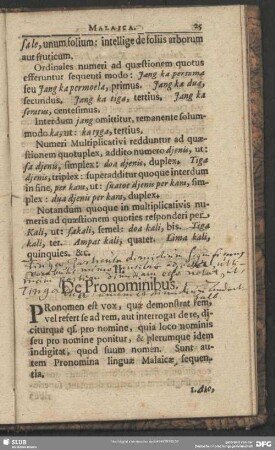 MALAICA. 25
salo, unum folium: intellige de foliis arborum
aut fruticum.
Ordinales numeri ad quæstionem quotus
efferuntur sequenti modo: Jang ka pertama
seu Jang ka permoela, primus. Jang ka dua,
secundus. Jang ka tiga, tertius. Jang ka
seratus, centesimus.
Interdum jang omittitur, remanente solum-
modo ka, ut: ka tyga, tertius.
Numeri Multiplicativi redduntur ad quæ-
stionem quotuplex, addito numero djenis, ut:
sa djenis, simplex: doa djenis, duplex, Tiga
djenis, triplex: superadditur quoque interdum
in fine, per kara, ut: suatoe djenis per kara, sim-
plex: dua djenis per kara, duplex,
Notandum quoque in multiplicativis nu-
meris ad quæstionem quoties responderi per
Kali, utt sakali, semel: doa kali, bis. Tiga
kali, ter. Ampat kali, quater. Lima kali,
quinquies. &c.
II.
De Pronominibus.
PRonomen est vox, quæ demonstrat rem,
vel refert se ad rem, aut interrogat de re, di-
citurque qs. pro nomine, quia loco nominis
seu pro nomine ponitur, & plerumque idem
indigitat, quod suum nomen. Sunt au-
tem Pronomina linguæ Malaicæ sequen-
tia,
SLUB
DFG